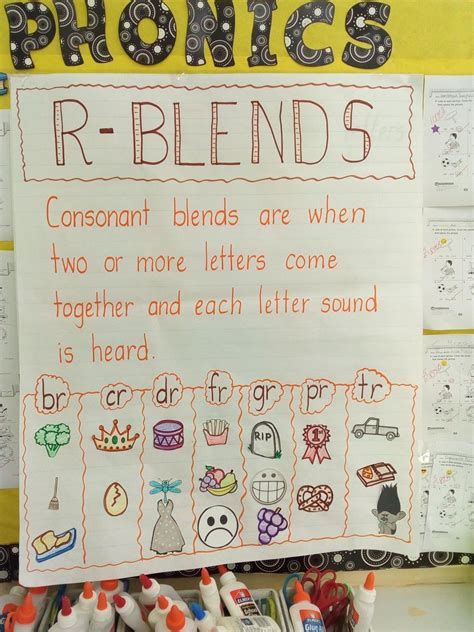 PHONICS
R-BLENDS
Consonant blends are when
two or more letters come
together and each letter sound
is heard.
br cr dr fr gr pr tr
RIP
1